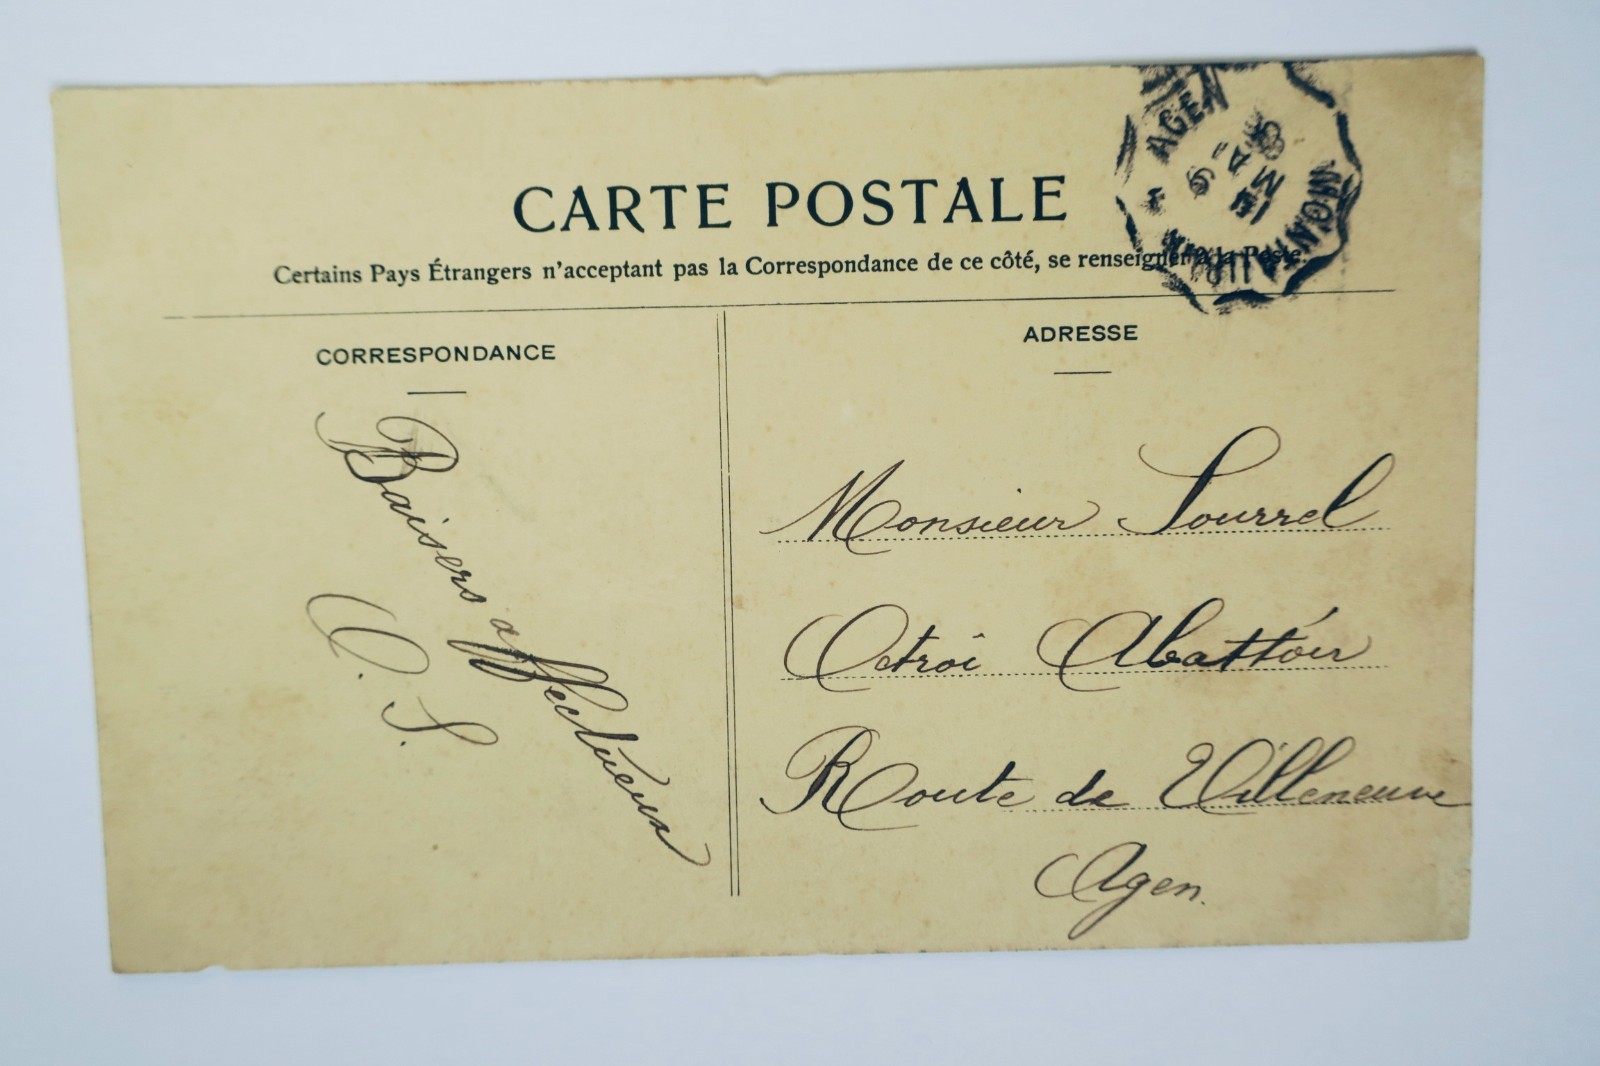 CARTE POSTALE
Certains Pays Étrangers n'acceptant pas la Correspondance de ce côté, se renseigner à la Poste.
CORRESPONDANCE
Baisers affectueux
O. S.
ADRESSE
Monsieur Sourrel
Octroi Abattoir
Route de Villeneuve
Agen.
AGEN